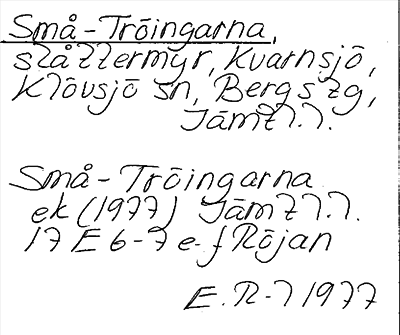 Små-Tröingarna,
slåttermyr, Kvarnsjö,
Klövsjö sn, Bergs tg,
Jämtl.l.
Små-Tröingarna
ek (1977) Jämtl.l.
17E 6-7 e-f Röjan
E.R-l 1977